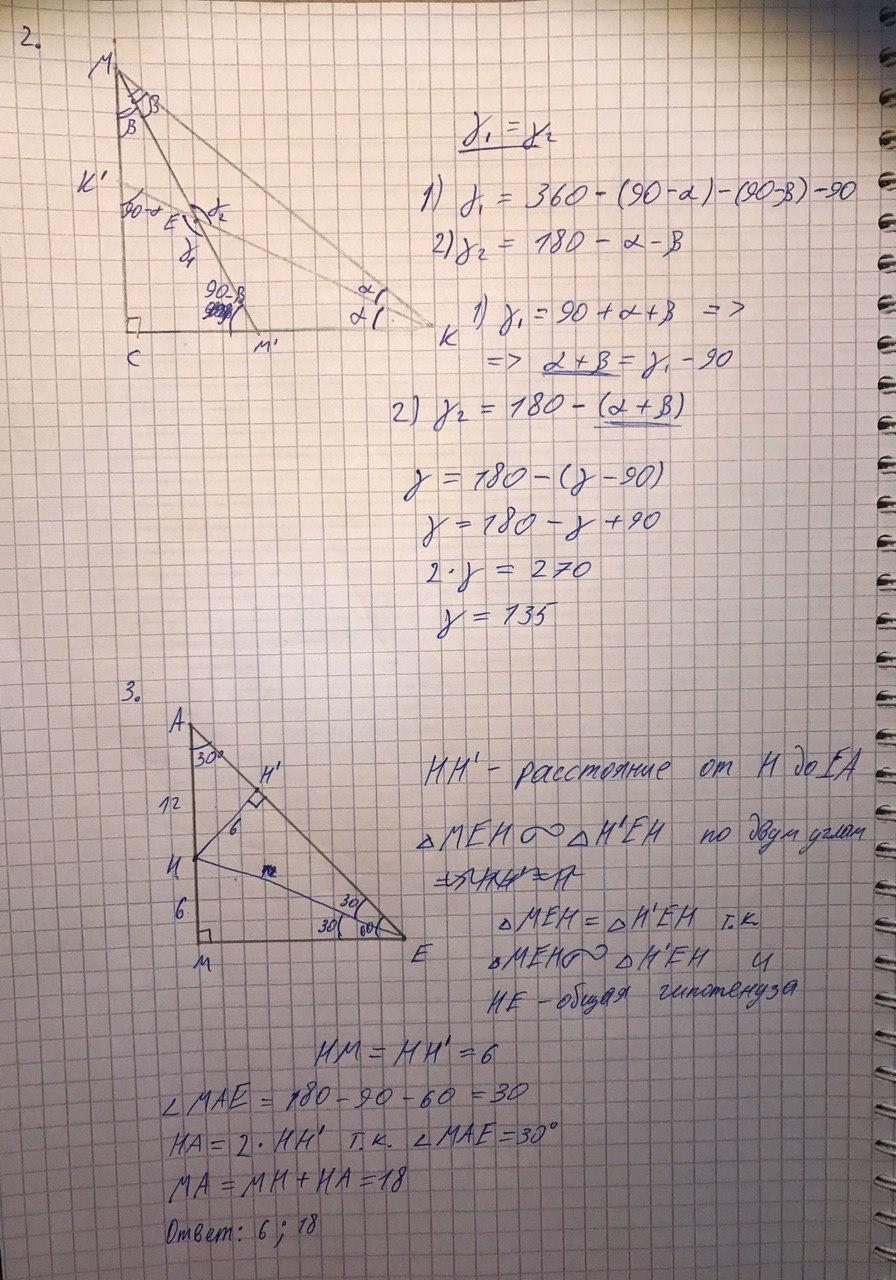 2.
M
β
β
K'
90-α
E
γ₂
γ₁
90-β
α
α
C
M'
K
γ₁ = γ₂
1) γ₁ = 360 - (90-α) - (90-β) - 90
2) γ₂ = 180 - α - β
1) γ₁ = 90 + α + β =>
=> α + β = γ₁ - 90
2) γ₂ = 180 - (α + β)
γ = 180 - (γ - 90)
γ = 180 - γ + 90
2·γ = 270
γ = 135
3.
A
30°
H'
12
6
H
6
30
30
60
M
E
HH' - расстояние от H до EA
△MEH ∾ △H'EH по двум углам
△MEH = △H'EH т.к
△MEH ∾ △H'EH и
HE - общая гипотенуза
HM = HH' = 6
∠MAE = 180 - 90 - 60 = 30
HA = 2·HH' т.к. ∠MAE = 30°
MA = MH + HA = 18
Ответ: 6 ; 18